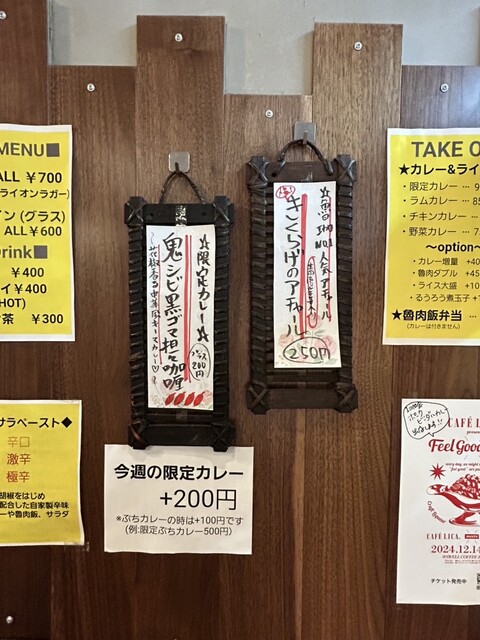 MENU■
ALL ￥700
ライオンラガー)
イン (グラス)
ALL￥600
Drink■
￥400
イ￥400
HOT)
茶 ￥300
サラペースト◆
辛口
激辛
極辛
胡椒をはじめ
配合した自家製辛味
ーや魯肉飯、サラダ
☆限定カレー☆
鬼シビ黒ゴマ担々咖喱
～花椒香る中華風キーマカレー♡～
プラス
200円
今週の限定カレー
+200円
※ぷちカレーの時は+100円です
(例:限定ぷちカレー500円)
☆魯珈
NO.1人気アチャール
きくらげのアチャール
250円
TAKE O
★カレー&ライ
・限定カレー … 9
・ラムカレー … 85
・チキンカレー …
・野菜カレー … 7
〜option〜
・カレー増量 +40
・魯肉ダブル +45
・ライス大盛 +10
・るうろう煮玉子 +1
★魯肉飯弁当 …
(カレーは付きません)
CAFÉ LICA.
presents
Feel Good
CAFÉ LICA.
2024.12.14
チケット発売中